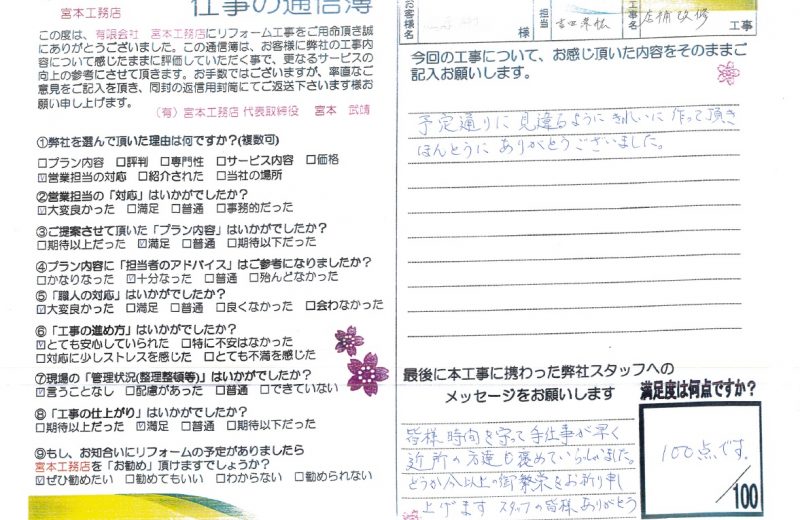 宮本工務店
仕事の通信簿
この度は、有限会社 宮本工務店にリフォーム工事をご用命頂き誠
にありがとうございました。この通信簿は、お客様に弊社の工事内
容について感じたままに評価していただく事で、更なるサービスの
向上の参考にさせて頂きます。お手数ではございますが、率直なご
意見をご記入を頂き、同封の返信用封筒にてご返送下さいます様お
願い申し上げます。
(有) 宮本工務店 代表取締役 宮本 武靖
①弊社を選んで頂いた理由は何ですか?(複数可)
□プラン内容 □評判 □専門性 □サービス内容 □価格
☑営業担当の対応 □紹介された □当社の場所
②営業担当の「対応」はいかがでしたか?
☑大変良かった □満足 □普通 □事務的だった
③ご提案させて頂いた「プラン内容」はいかがでしたか?
□期待以上だった ☑満足 □普通 □期待以下だった
④プラン内容に「担当者のアドバイス」はご参考になりましたか?
□かなりなった ☑十分なった □普通 □殆んどなかった
⑤「職人の対応」はいかがでしたか?
☑大変良かった □満足 □普通 □良くなかった □会わなかった
⑥「工事の進め方」はいかがでしたか?
☑とても安心していられた □特に不安はなかった
□対応に少しストレスを感じた □とても不満を感じた
⑦現場の「管理状況(整理整頓等)」はいかがでしたか?
☑言うことなし □配慮があった □普通 □できていない
⑧「工事の仕上がり」はいかがでしたか?
□期待以上だった ☑満足 □普通 □期待以下だった
⑨もし、お知合いにリフォームの予定がありましたら
宮本工務店を「お勧め」頂けますでしょうか?
☑ぜひ勧めたい □勧めてもいい □わからない □勧められない
お客様名 様 担当 工事名 店舗改修 工事
今回の工事について、お感じ頂いた内容をそのままご
記入お願いします。
予定通りに見違るようにきれいに作って頂き
ほんとうにありがとうございました。
最後に本工事に携わった弊社スタッフへの
メッセージをお願いします
皆様時間を守って手仕事が早く
近所の方達も褒めていらしゃいました。
どうか今以上の御繁栄をお祈り申し
上げます スタッフの皆様ありがとう
満足度は何点ですか?
100点です.
/100